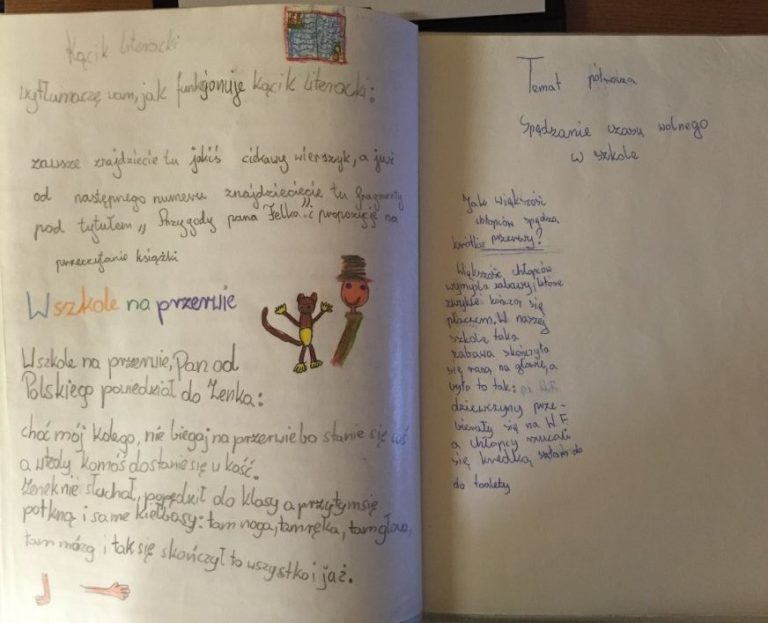 Kącik literacki
wytłumaczę wam, jak funkcjonuje kącik literacki:
zawsze znajdziecie tu jakiś ciekawy wierszyk, a już
od następnego numeru znajdziecięcie tu fragmenty
pod tytułem „Przygody pana Felka" i propozycję na
przeczytanie książki
W szkole na przerwie
W szkole na przerwie, Pan od
Polskiego powiedział do Zenka:
choć mój kolego, nie biegaj na przerwie bo stanie się coś
a wtedy komóś dostanie się u kość.
Zenek nie słuchał, popędził do klasy a przytym się
potkną i same kiełbasy: tam noga, tam ręka, tam głowa,
tam mózg i tak się skończył to wszystko i jaż.
Temat półrocza
Spędzanie czasu wolnego
w szkole
Jak większość
chłopców spędza
krótkie przerwy?
Większość chłopców
wymyśla zabawy, które
zwykle kończą się
płaczem. W naszej
szkole taka
zabawa skończyła
się raną na głowie, a
było to tak:
dziewczyny prze-
bierały się na W.F
a chłopcy rzucali
się kredką
do toalety